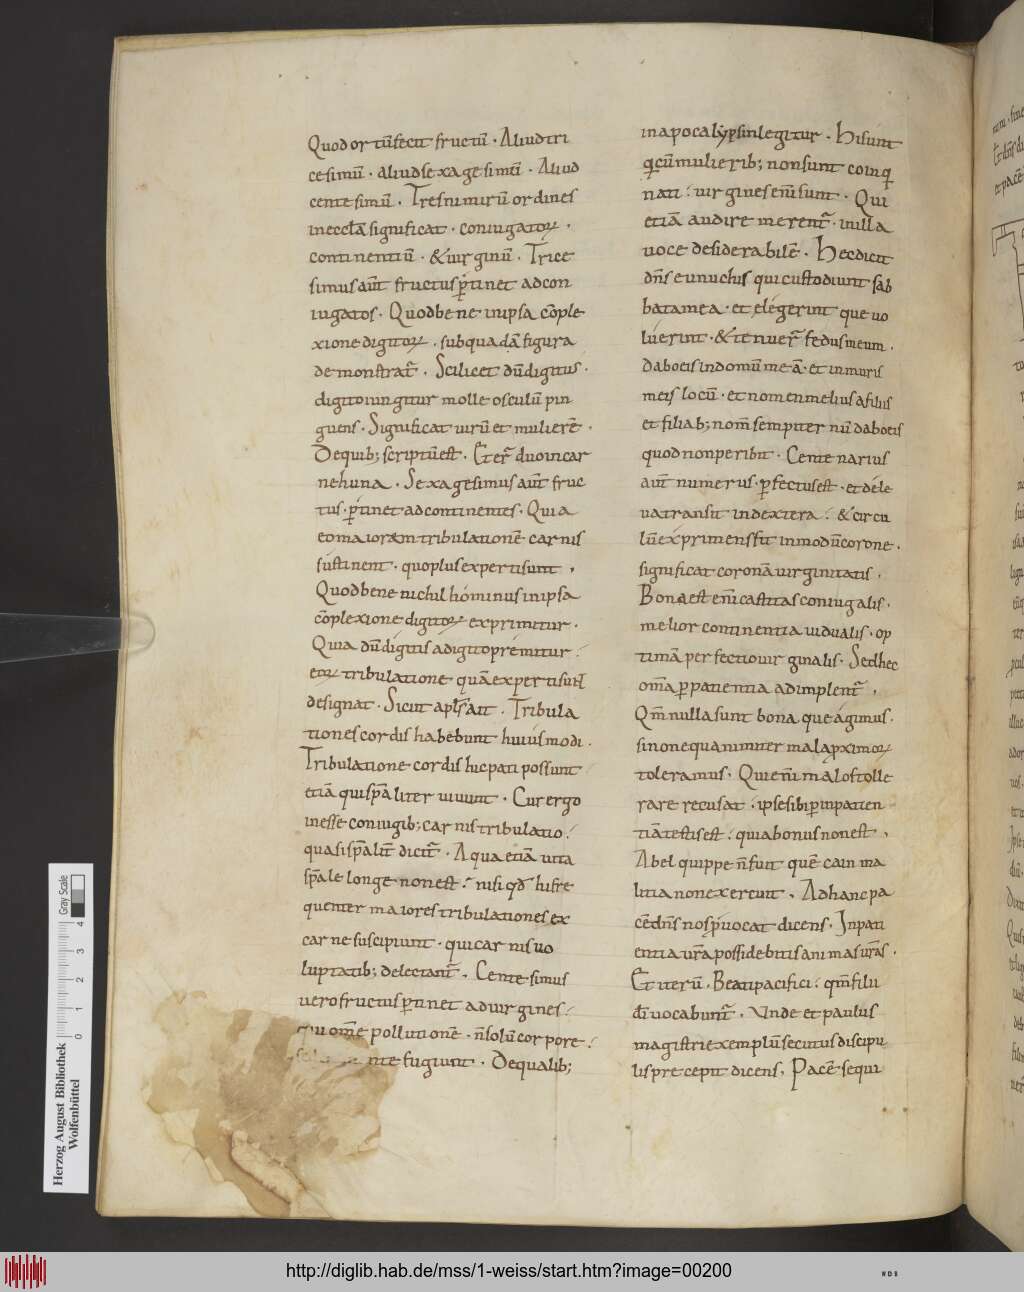 Quod ortū fecit fructū · Aliud tri
cesimū · aliud sexagesimū · Aliud
centesimū · Tres nimirū ordines
in eccłā significat · coniugatoꝝ ·
continentiū · & uirginū · Trice
simus aūt fructus ꝑtinet ad con
iugatos · Quod bene in ipsa cōple
xione digitoꝝ · sub quadā figura
demonstrat̄ · Scilicet dū digitus ·
digito iungitur molle osculū pin
guens · Significat uirū et mulierē ·
De quib; scriptū est · Et er̄ duo in car
ne una · Sexagesimus aūt fruc
tus · ꝑtinet ad continentes · Quia
eo maiorem tribulationē carnis
sustinent · quo plus experti sunt ·
Quod bene nichil hominus in ipsa
cōplexione digitoꝝ exprimitur ·
Quia dū digitis a digito premitur :
eoꝝ tribulatione quā experti sunt
designat · Sicut apłs ait · Tribula
tiones cordis habebunt huius modi ·
Tribulatione cordis hic pati possunt
etiā qui spāliter uiuunt · Cur ergo
inesse coniugib; carnis tribulatio :
quasi spālit̄ dicit̄ · A qua etiā uita
spāle longe non est : nisi qđ hi fre
quenter maiores tribulationes ex
carne suscipiunt · qui carnis uo
luptatib; delectant̄ · Centesimus
uero fructus ꝑtinet ad uirgines :
Qui omē pollutionē · n̄ solū corpore :
sed mente fugiunt · De qualib;
in apocalypsin legitur · Hi sunt
qi cū mulierib; non sunt coinqi
nati : uirgines eni sunt · Qui
etiā audire merent̄ · in illa
uoce desiderabilē · Hec dicit
dn̄s eunuchis qui custodiunt sab
bata mea · et elegerint que uo
luerint · & tenuer̄ fedus meum ·
Dabo eis in domū meā · et in muris
meis locū · et nomen melius a filiis
et filiab; nom̄ sempiternū dabo eis
quod non peribit · Centenarius
aūt numerus · ꝑfectus est · et de le
ua transit in dextera : & circu
lū exprimens fit in modū corone ·
significat coronā uirginitatis ·
Bona est eni castitas coniugalis ·
melior continentia uidualis · op
timā perfectio uirginalis · Sed hec
om̄a ꝑ patientia adimplent̄ ·
Qm̄ nulla sunt bona que agimus ·
si non equanimiter mala ꝓximoꝝ
toleramus · Qui eni malos tolle
rare recusat · ipse sibi ꝑ inpatien
tiā testis est : quia bonus non est ·
Abel quippe n̄ fuit quē cain ma
litia non exercuit · Ad hanc pa
cē dn̄s nos ꝓuocat dicens · In pati
entia ur̄a possidebitis animas ur̄as ·
Et iterū · Beati pacifici : qm̄ filii
dī uocabunt̄ · Unde et paulus
magistri exemplū secutus discipu
lis precepit dicens · Pacē sequi
Gray Scale
0 1 2 3 4
Herzog August Bibliothek
Wolfenbüttel
http://diglib.hab.de/mss/1-weiss/start.htm?image=00200